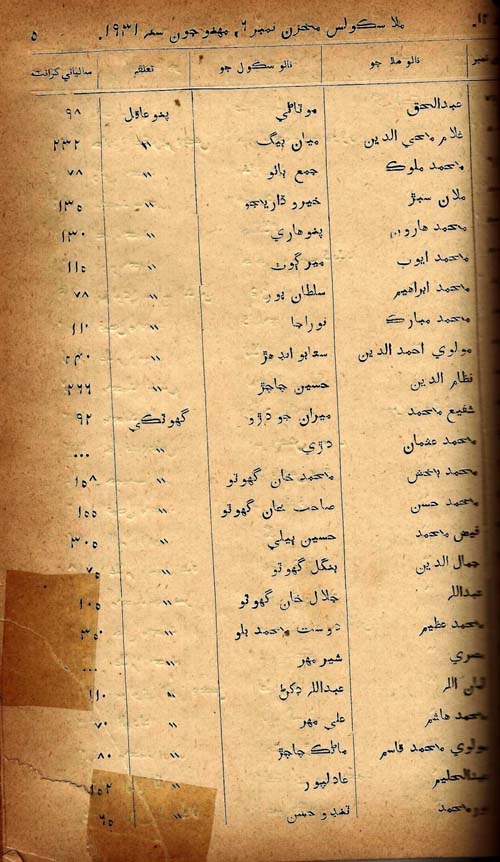 ملا سڪولس مخزن نمبر ٦, مهنو جون سنه ١٩٣١. ٥
نمبر نالو ملان جو نالو سڪول جو تعلقه سالياني گرانٽ
عبدالحق موٽاڻي پنو عاقل ٩٨
غلام محي الدين ميان بيگ " ٢٣٢
محمد ملوڪ جمع ٻانو " ٧٨
ملان سچڙ خيرو ڏاريجو " ١٣٥
محمد هارون پنوهاري " ١٣٠
محمد ايوب مير ڳوٺ " ١١٥
محمد ابراهيم سلطان پور " ٧٨
محمد مبارڪ نوراجا " ١١٠
مولوي احمد الدين انڍهڙ " ٢٤٠
نظام الدين حسين چاچڙ " ٢٦٦
شفيع محمد ميران جو دڙو گهوٽڪي ٩٢
محمد عثمان دڙي " ...
محمد بخش محمد خان گهوٽو " ١٥٨
محمد حسن صاحب خان گهوٽو " ١٥٥
فيض محمد حسين ٻيلي " ٣٠٥
جمال الدين ٻنگل گهوٽو " ٧٥
عبدالله جلال خان گهوٽو " ١٠٥
محمد عظيم دوست محمد بلو " ٣٥٠
مصري شير مهر " ...
امان الله عبدالله " ١١٠
محمد هاشم علي مهر " ٧٠
مولوي محمد قاسم ماڻڪ چاچڙ " ٨٠
عبدالحليم عادلپور " ١٥٢
محمد حسن " ٦٥